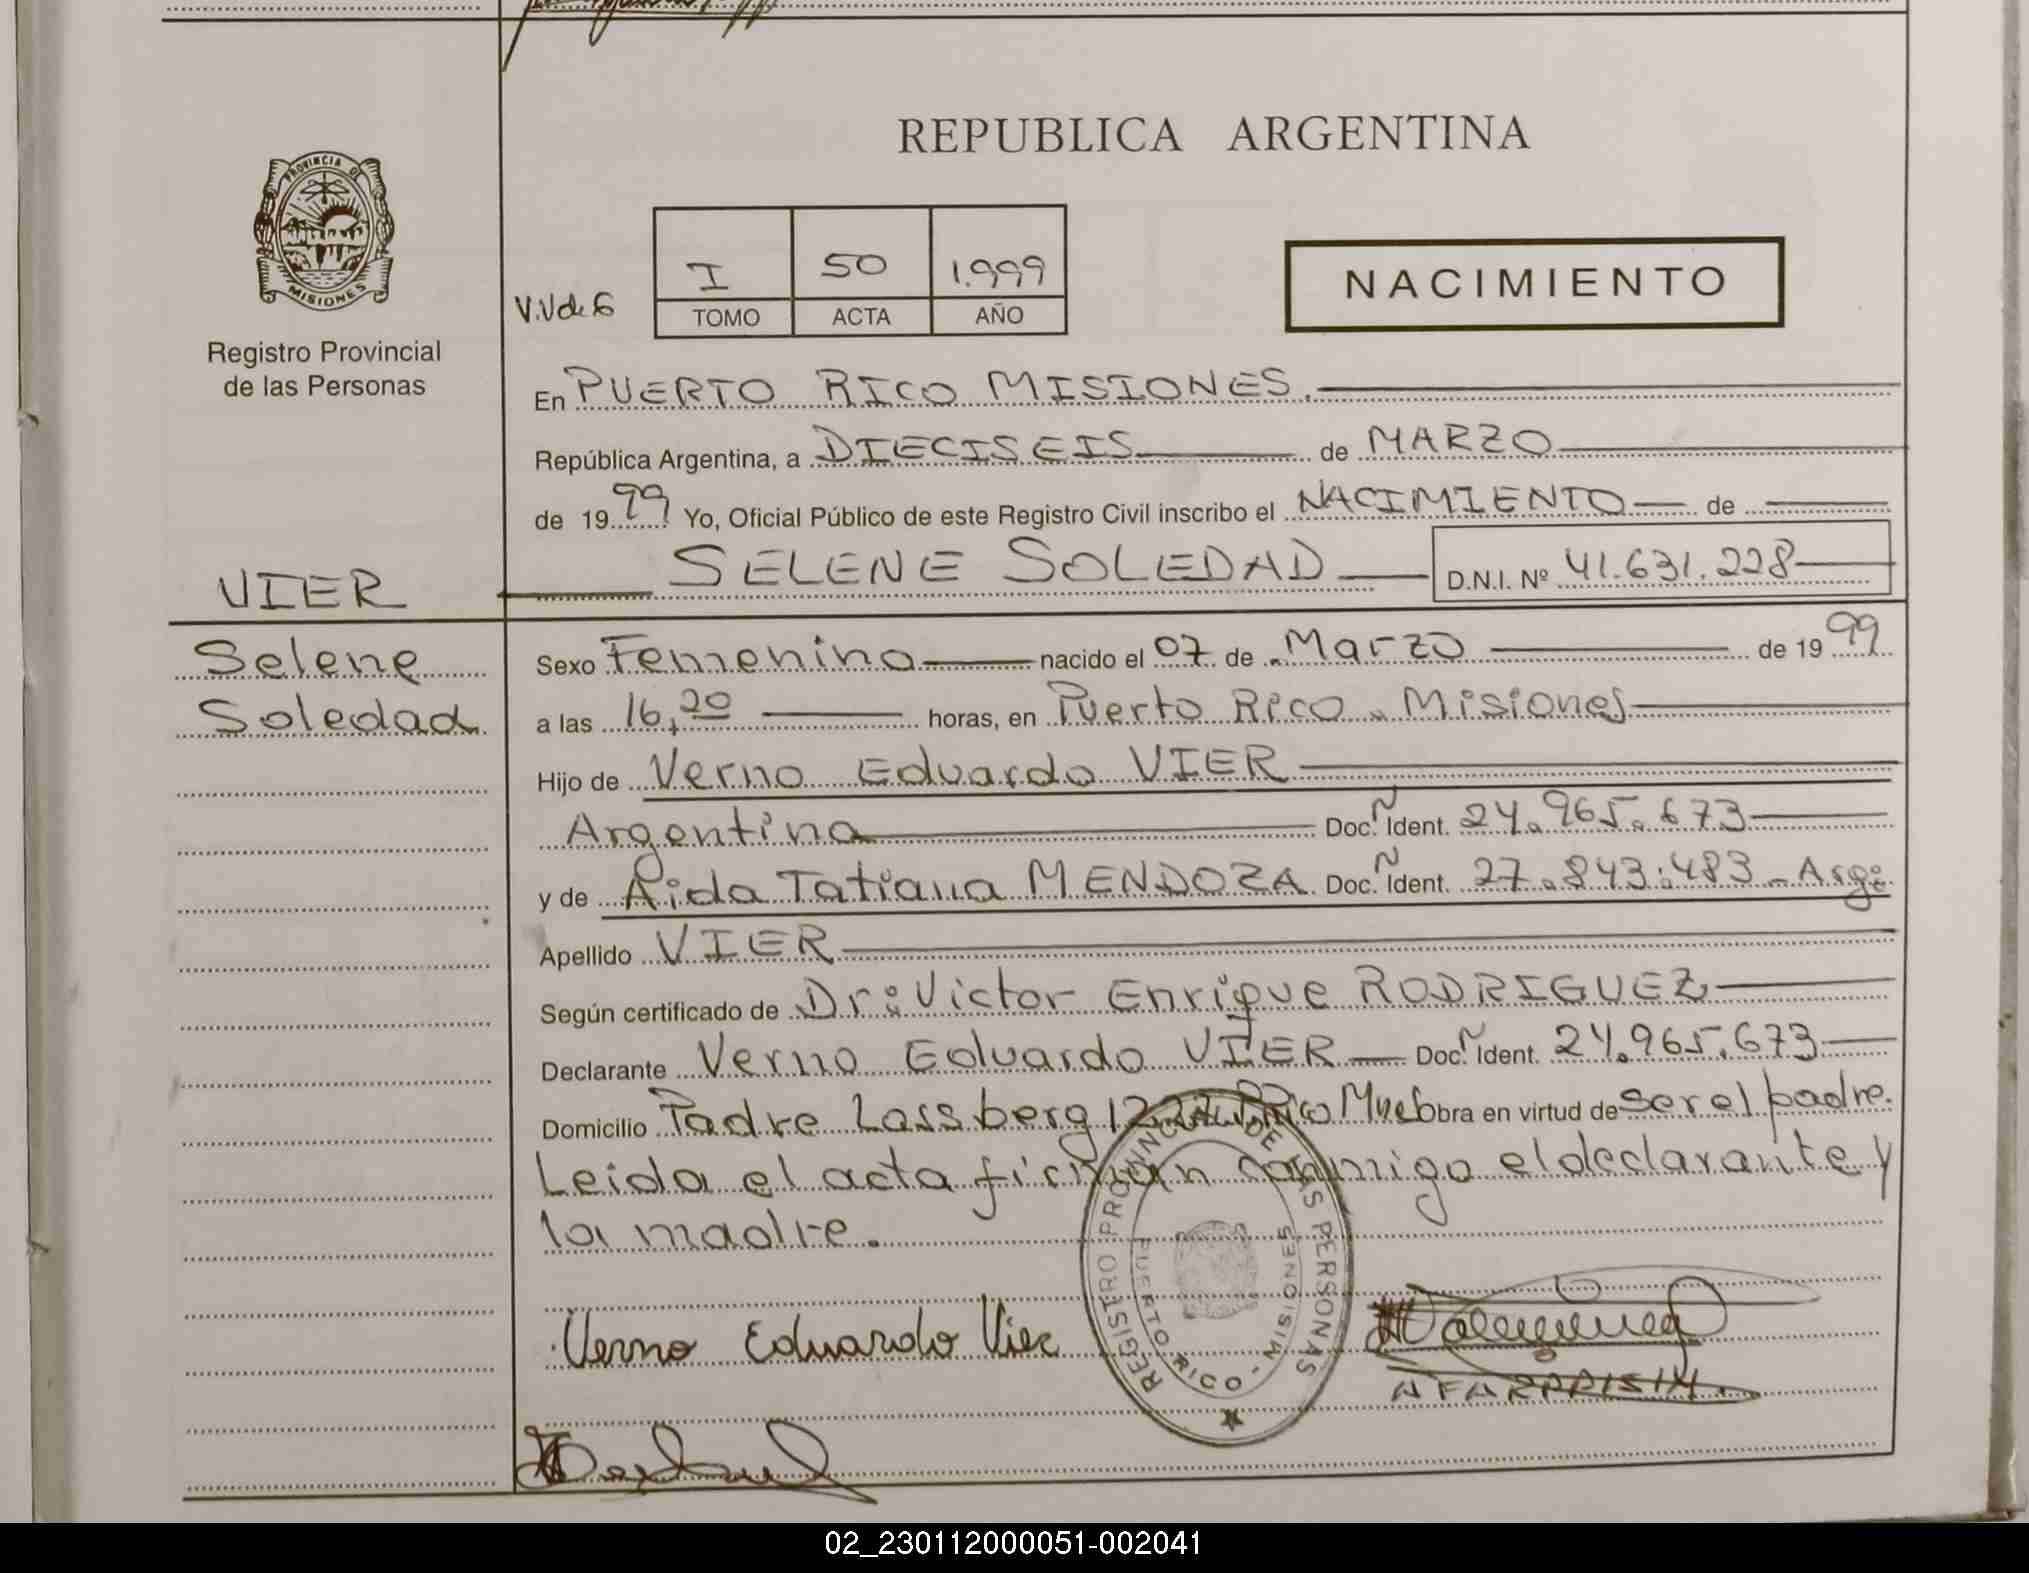 REPUBLICA ARGENTINA
PROVINCIA DE
MISIONES
Registro Provincial
de las Personas
V.V de G
I 50 1.999
TOMO ACTA AÑO
NACIMIENTO
En PUERTO RICO MISIONES.
República Argentina, a DIECISEIS de MARZO
de 1999 Yo, Oficial Público de este Registro Civil inscribo el NACIMIENTO de
SELENE SOLEDAD D.N.I. Nº 41.631.228
VIER
Selene
Soledad
Sexo Femenino nacido el 07 de Marzo de 1999
a las 16,20 horas, en Puerto Rico. Misiones
Hijo de Verno Eduardo VIER
Argentina Doc. Ident. 24.965.673
y de Aida Tatiana MENDOZA Doc. Ident. 27.843.483 - Arg:
Apellido VIER
Según certificado de Dr: Victor Enrique RODRIGUEZ
Declarante Verno Eduardo VIER Doc. Ident. 24.965.673
Domicilio Padre Lassberg Rico Mnes obra en virtud de ser el padre.
Leida el acta firman conmigo el declarante y
la madre.
REGISTRO PROVINCIAL DE LAS PERSONAS
PUERTO RICO - MISIONES
Verno Eduardo Vier
02_230112000051-002041